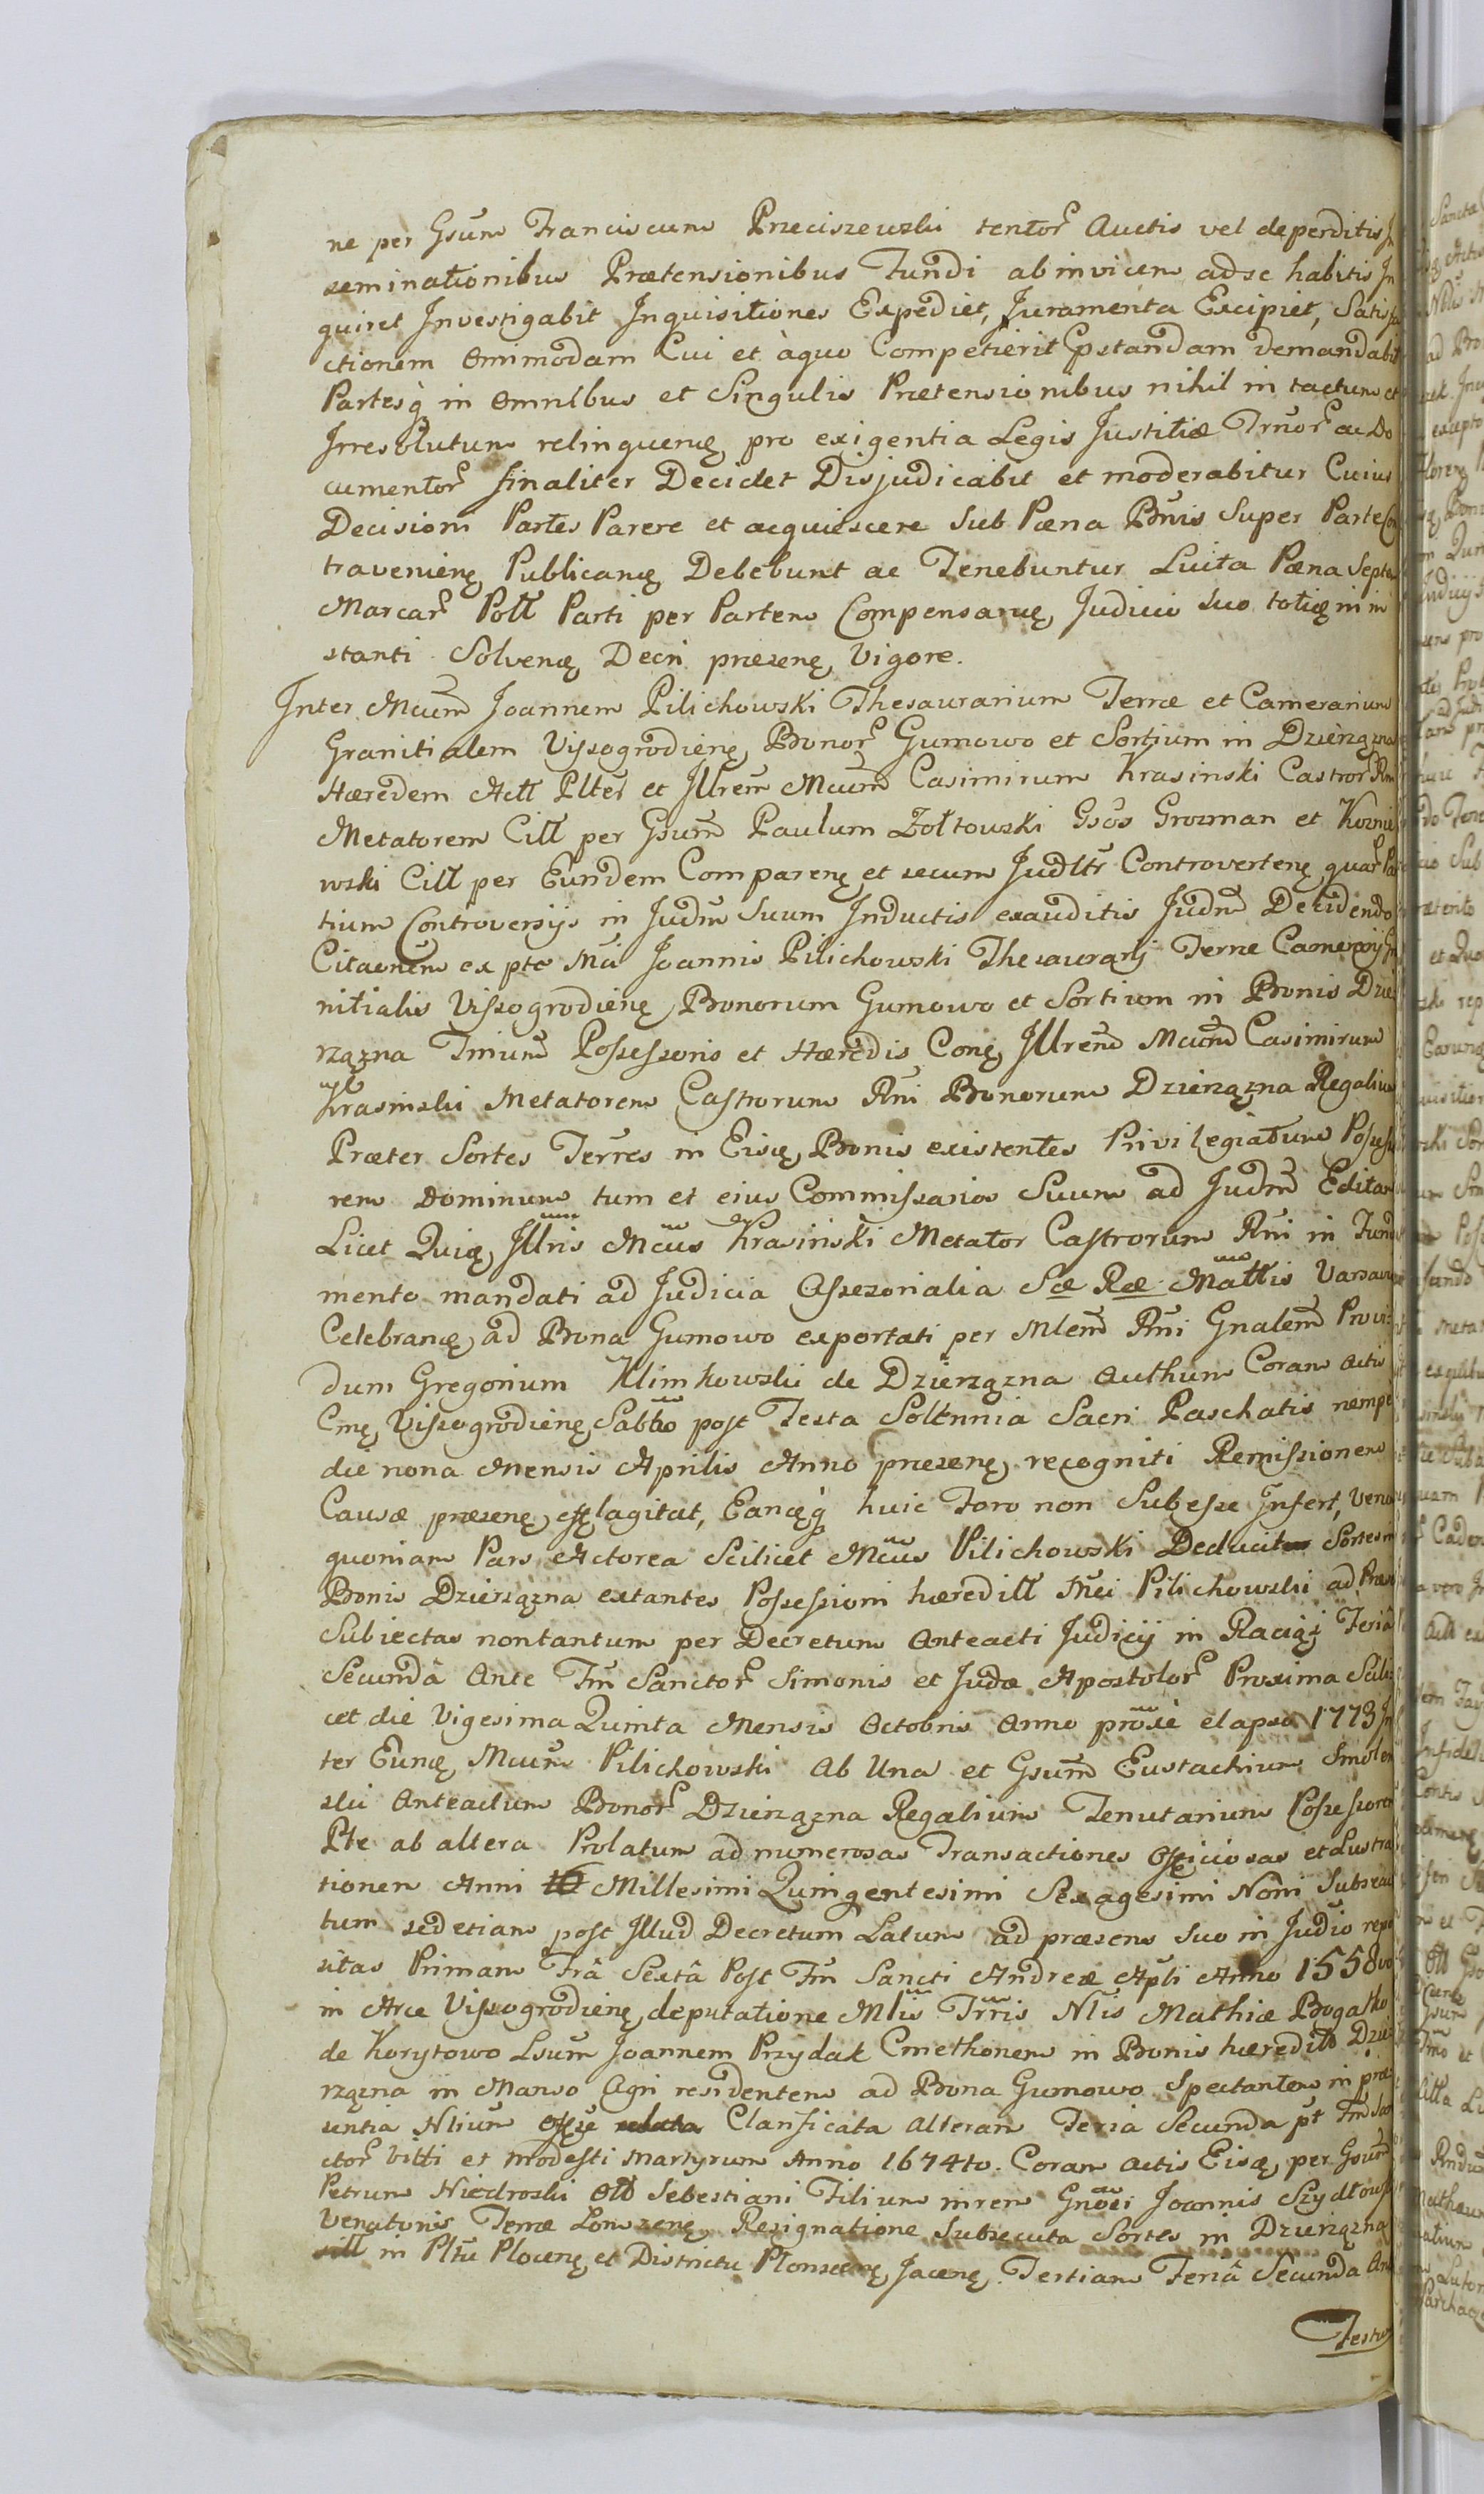 ne per Gsum Franciscum Przeciszewski tentor Auctis vel deperditis In
seminationibus Prætensionibus Fundi ab invicem ad se habitis In
quiret Investigabit Inquisitiones Expediet, Juramenta Excipiet, Satisfa
ctionem Ommodam Cui et àquo Competierit Pstandam demandabit
Partesq in Omnibus et Singulis Prætensionibus nihil in tactum et
Irresolutum relinquenę pro exigentia Legis Justitiæ Trnor ac Do
cumentor finaliter Decidet Disjudicabit et moderabitur Cuius
Decisioni Partes Parere et acquiescere Sub Pæna Bnis Super Parte Con
travenienę Publicanę Debebunt ac Tenebuntur Luita Pæna Septem
Marcar Poll Parti per Partem Compensanę Judicio suo totię in in
stanti Solvenę Decri præsenę Vigore.
Inter Mcum Joannem Pilichowski Thesaurarium Terræ et Camerarium
Granitialem Vissogrodienę Bonor Gumowo et Sortium in Dzierząźna
Hæredem Actt Plter et Jllrem Mcum Casimirum Krasinski Castror Rni
Metatorem Citt per Gsum Paulum Zołtowski Gsos Grozman et Koznie
wski Citt per Eundem Comparenę et secum Judltr Controvertenę quar Par
tium Controversijs in Judm Suum Inductis exauditis Judm Decidendo
Citaonem ex pte Mci Joannis Pilichowski Thesaurarij Terræ Camerarij Gra
nitialis Vissogrodienę Bonorum Gumowo et Sortium in Bonis Dzie
rząźna Tnium Possessoris et Hæredis Conę Jllrem Mcum Casimirum
Krasinski Metatorem Castrorum Rni Bonorum Dzierząźna Regalium
Præter Sortes Terres in Eisę Bonis existentes Privilegiatum Possesso
rem Dominum tum et eius Commissarios Suum ad Judm Editam
Licet Quię Jllris Mcus Krasinski Metator Castrorum Rni in Funda
mento mandati ad Judicia Assesorialia Sæ Ræ Mattis Varsaviæ
Celebranę ad Bona Gumowo exportati per Mlem Rni Gnalem Provi
dum Gregorium Klimkowski de Dzierząźna Authum Coram Actis
Cnę Vissogrodienę Sabbo post Festa Solennia Sacri Paschatis nempe
die nona Mensis Aprilis Anno præsenę recogniti Remissionem
Causæ præsenę efflagitat, Eancęq huic Foro non Subesse Infert, Verum
quoniam Pars Actorea Scilicet Mcus Pilichowski Deducit Sortes in
Bonis Dzierząźna extantes Possessioni hæreditt Mci Pilichowski ad Præs
Subiectas nontantum per Decretum Anteacti Judicij in Raciąż Feriâ
Secundâ Ante Fm Sanctor Simonis et Judæ Apostolor Proxima Scili
cet die Vigesima Quinta Mensis Octobris Anno proxè elapso 1773 In
ter Eunę Mcum Pilichowski Ab Una et Gsum Eustachium Smolen
ski Anteactum Bonor Dzierząźna Regalium Tenutarium Possessorem
Pte ab altera Prolatum ad numerosas Transactiones Officiosas et Lustra
tionem Anni Millesimi Quingentesimi Sexagesimi Noni Subsecu
tum sed etiam post Jllud Decretum Latum ad præsens suo in Judio repo
sitas Primam Frâ Sextâ Post Fm Sancti Andreæ Apli Anno 1558vo
in Arce Vissogrodienę deputatione Mlis Trris Nlis Mathiæ Bogatko
de Korytowo Lsum Joannem Przydak Cmethonem in Bonis hæreditt Dzie
rząźna in Manso Agri residentem ad Bona Gumowo Spectantem in præ
sentia Nlium Offse Clarificata alteram Feria Secunda pt Fm San
ctor Vitti et Modesti Martyrum Anno 1674to. Coram Actis Eisę per Gsum
Petrum Niedroski Olb Sebestiani Filium in rem Gnosi Joannis Szydłowski
Venatoris Terræ Lomzenę Resignatione Subsecuta Sortes in Dzierząźna
sitt in Pltu Plocenę et Districtu Plonscenę Jacenę. Tertiam Feriâ Secunda Ante
Festum